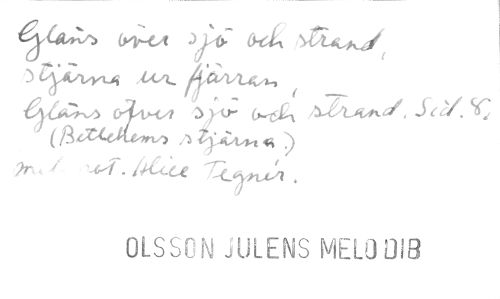 Gläns över sjö och strand,
stjärna ur fjärran,
Gläns öfver sjö och strand. Sid. 8,
(Betlehems stjärna.)
mel. not. Alice Tegnér.
OLSSON JULENS MELODIB